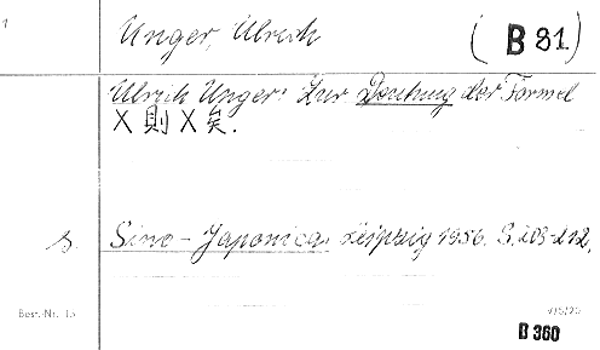 1
Unger, Ulrich
(B 81)
Ulrich Unger: Zur Deutung der Formel
X 則 X 矣.
s. Sino-Japonica. Leipzig 1956. S. 203-212.
Best.-Nr. 15
B 360